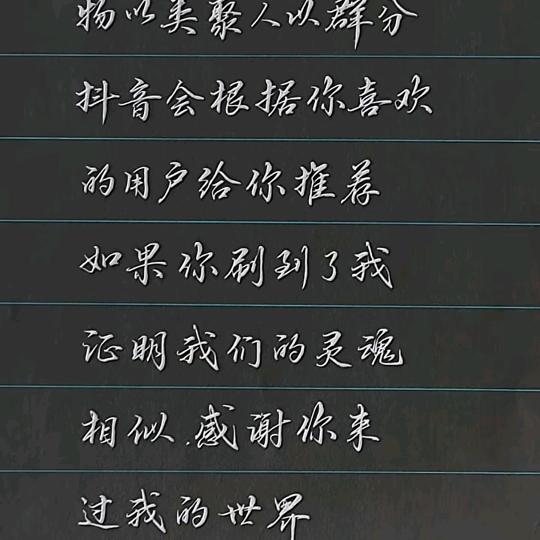 物以类聚人以群分
抖音会根据你喜欢
的用户给你推荐
如果你刷到了我
证明我们的灵魂
相似.感谢你来
过我的世界